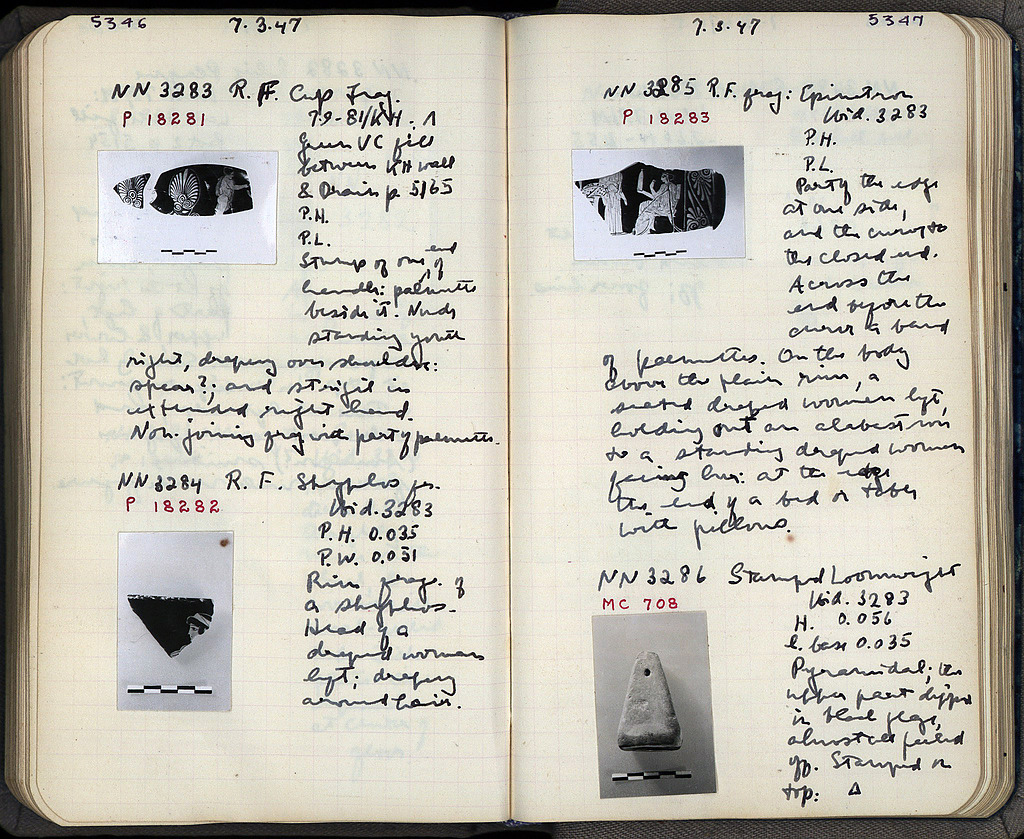 5346 7.3.47
NN 3283 R.F. Cup Frag.
P 18281 79-81/KH:1
Green VC fill
between KH wall
& Drain p. 5165
P.H.
P.L.
Stump of one end of
handle: palmette
beside it. Nude
standing youth
right, drapery over shoulder:
spear?; and strigil in
extended right hand.
Non-joining frag with part of palmette.
NN 3284 R. F. Skyphos fr.
P 18282 Ibid. 3283
P.H. 0.035
P.W. 0.031
Rim frag. of
a skyphos.
Head of a
draped woman
left; drapery
around hair.
7.3.47 5347
NN 3285 R.F. frag: Epinetron
P 18283 Ibid. 3283
P.H.
P.L.
Part of the edge
at one side,
and the curve to
the closed end.
Across the
end before the
curve a band
of palmettes. On the body
above the plain rim, a
seated draped woman left,
holding out an alabastron
to a standing draped woman
facing her: at the edge
the end of a bed or
with pillows.
NN 3286 Stamped Loomweight
MC 708 Ibid. 3283
H. 0.056
l. base 0.035
Pyramidal; the
upper part dipped
in black glaze,
almost all peeled
off. Stamped on
top: Δ